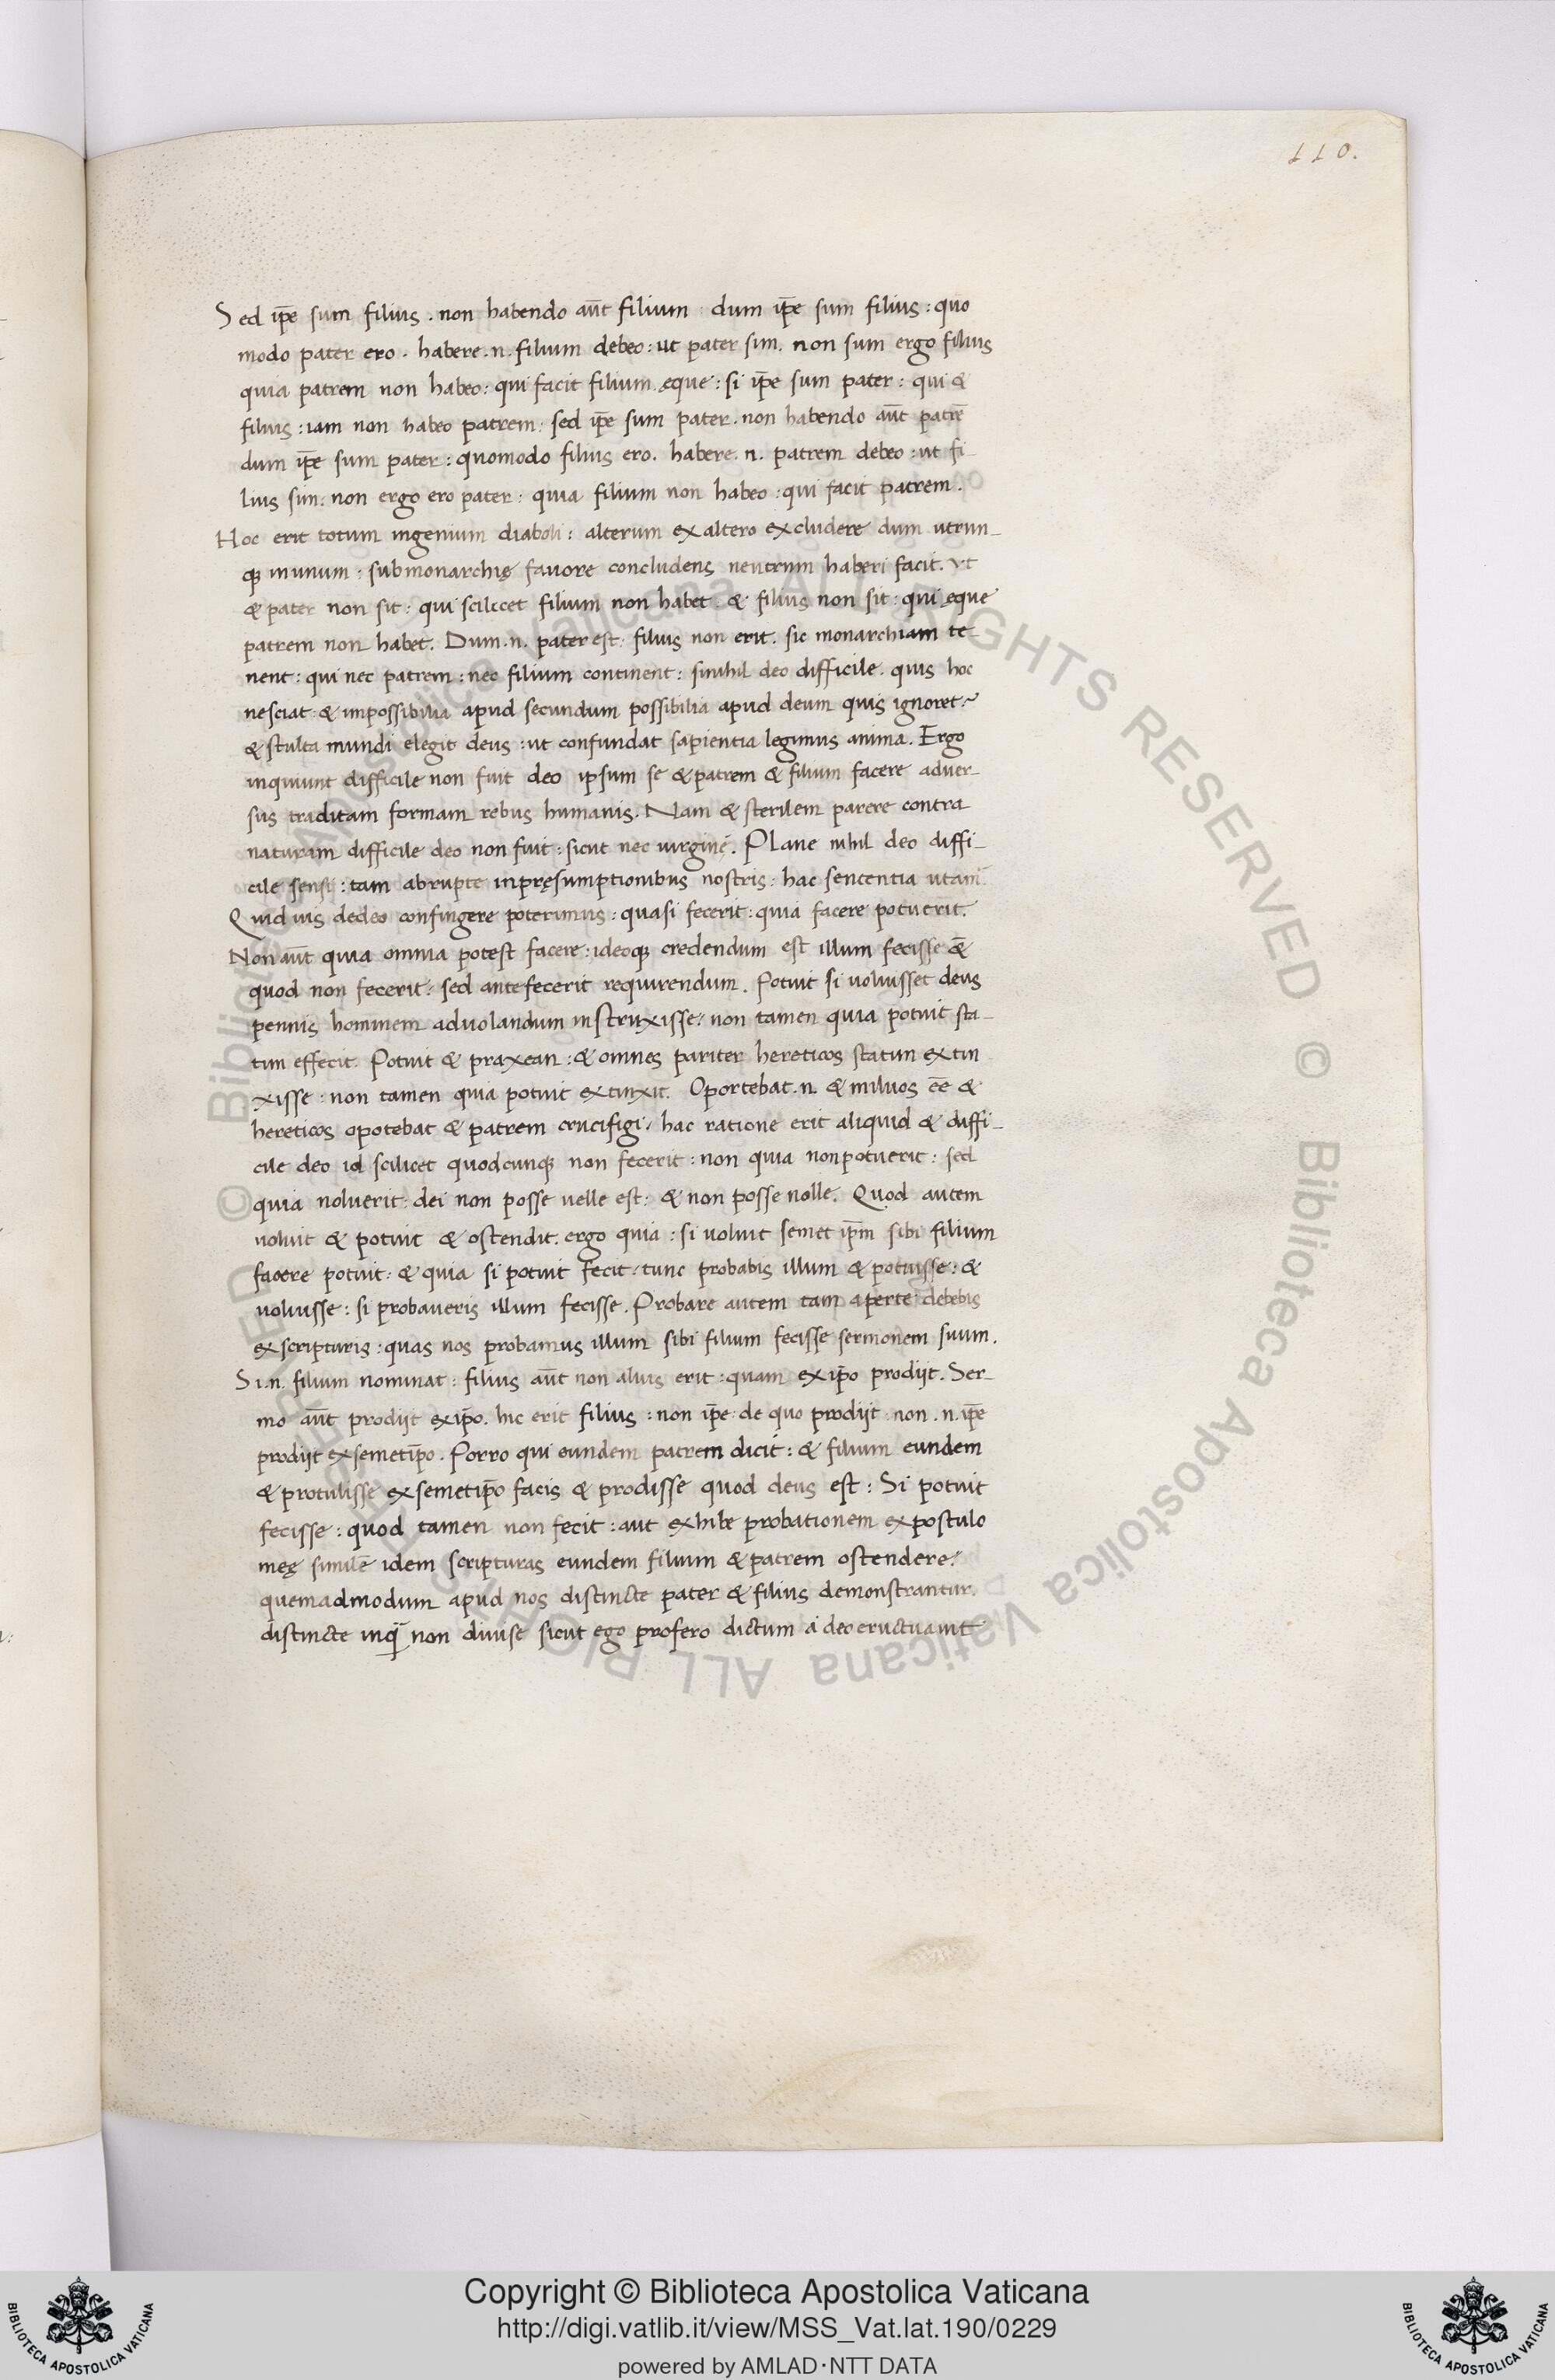 110.
Sed ip̄e sum filius . non habendo aūt filium : dum ip̄e sum filius : quo
modo pater ero . habere .n. filium debeo : ut pater sim . non sum ergo filius
quia patrem non habeo : qui facit filium . ęque : si ip̄e sum pater : qui &
filius : iam non habeo patrem : sed ip̄e sum pater . non habendo aūt patrē
dum ip̄e sum pater : quomodo filius ero . habere .n. patrem debeo : ut fi-
lius sim : non ergo ero pater : quia filium non habeo : qui facit patrem .
Hoc erit totum ingenium diaboli : alterum ex altero excludere dum utrun-
qȝ inunum : submonarchię favore concludens neutrum haberi facit . Vt
& pater non sit : qui scilicet filium non habet . & filius non sit : qui ęque
patrem non habet . Dum .n. pater est : filius non erit . sic monarchiam te-
nent : qui nec patrem : nec filium continent : sinihil deo difficile . quis hoc
nesciat : & impossibilia apud secundum possibilia apud deum quis ignoret ?
& stulta mundi elegit deus : ut confundat sapientia legimus anima . Ergo
inquiunt difficile non fuit deo ipsum se & patrem & filium facere adver-
sus traditam formam rebus humanis . Nam & sterilem parere contra
naturam difficile deo non fuit : sicut nec uirginę . PLane nihil deo diffi-
cile sensi : tam abrupte inpręsumptionibus nostris : hac sententia utam̄
Quid uis dedeo confingere poterimus : quasi fecerit : quia facere potuerit .
Non aūt quia omnia potest facere : ideoqȝ credendum est illum fecisse &̄
quod non fecerit : sed antefecerit requirendum . Potuit si uoluisset deus
pennis hominem aduolandum instruxisse : non tamen quia potuit sta-
tim effecit . Potuit & praxean : & omnes pariter hereticos statim extin
xisse : non tamen quia potuit extinxit . Oportebat .n. & miluos eē &
hereticos opotebat & patrem crucifigi . hac ratione erit aliquid & diffi-
cile deo id scilicet quodcunqȝ non fecerit : non quia nonpotuerit : sed
quia noluerit : dei non posse uelle est : & non posse nolle . Quod autem
uoluit & potuit & ostendit . ergo quia : si uoluit semet ip̄m sibi filium
facere potuit : & quia si potuit fecit : tunc probabis illum & potuisse : &
uoluisse : si probaueris illum fecisse . Probare autem tam aperte debebis
ex scripturis : quas nos probamus illum sibi filium fecisse sermonem suum .
Si .n. filium nominat : filius aūt non alius erit : quam ex ip̄o prodijt . Ser-
mo aūt prodijt exip̄o . hic erit filius : non ip̄e de quo prodijt : non .n. ip̄e
prodijt exsemetip̄o . Porro qui eundem patrem dicit : & filium eundem
& protulisse exsemetip̄o facis & prodisse quod deus est : Si potuit
fecisse : quod tamen non fecit : aut exhibe probationem expostulo
meę similē idem scripturas eundem filium & patrem ostendere :
quemadmodum apud nos distincte pater & filius demonstrantur .
distincte inqȝ̄ non diuise sicut ego profero dictum á deo eructuauit
© Biblioteca Apostolica Vaticana ALL RIGHTS RESERVED © Biblioteca Apostolica Vaticana ALL RIGHTS RESERVED
Copyright © Biblioteca Apostolica Vaticana
http://digi.vatlib.it/view/MSS_Vat.lat.190/0229
powered by AMLAD·NTT DATA
BIBLIOTECA APOSTOLICA VATICANA
BIBLIOTECA APOSTOLICA VATICANA